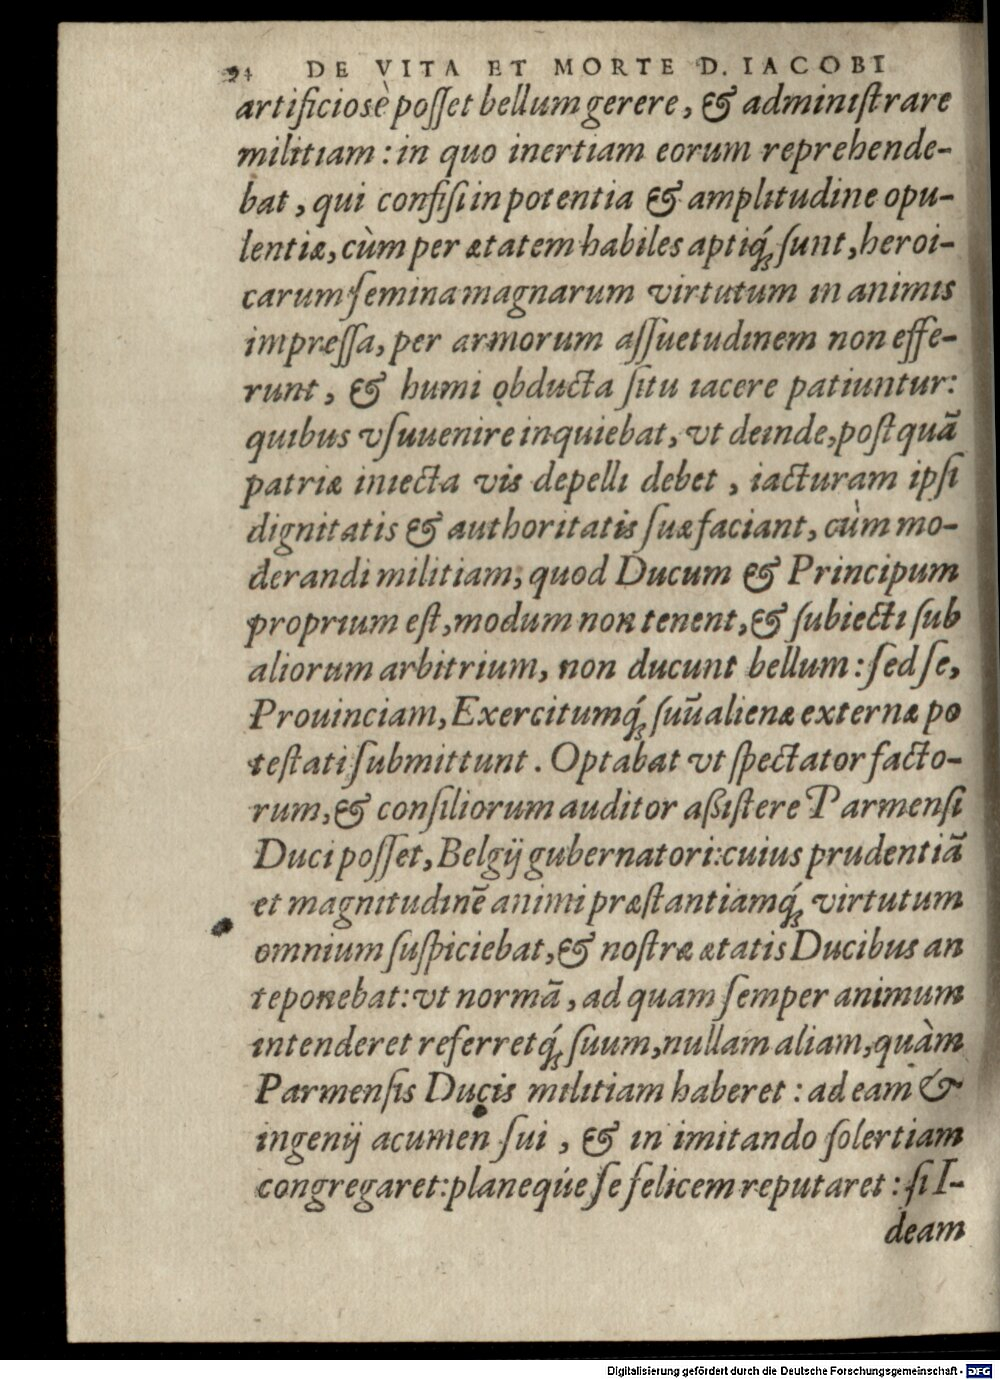 94 DE VITA ET MORTE D. IACOBI
artificiosè poſſet bellum gerere, & adminiſtrare
militiam: in quo inertiam eorum reprehende-
bat, qui confiſi in potentia & amplitudine opu-
lentiæ, cùm per ætatem habiles aptiq́ꝫ ſunt, heroi-
carum ſemina magnarum virtutum in animis
impreſſa, per armorum aſſuetudinem non effe-
runt, & humi obducta ſitu iacere patiuntur:
quibus vſuuenire inquiebat, vt deinde, poſtquã
patriæ iniecta vis depelli debet, iacturam ipſi
dignitatis & authoritatis ſuæ faciant, cùm mo-
derandi militiam, quod Ducum & Principum
proprium eſt, modum non tenent, & ſubiecti ſub
aliorum arbitrium, non ducunt bellum: ſed ſe,
Prouinciam, Exercitumq́ꝫ ſuũ alienæ externæ po
teſtati ſubmittunt. Optabat vt ſpectator facto-
rum, & conſiliorum auditor aßiſtere Parmenſi
Duci poſſet, Belgij gubernatori: cuius prudentiã
et magnitudinẽ animi præſtantiamq́ꝫ virtutum
omnium ſuſpiciebat, & noſtræ ætatis Ducibus an
teponebat: vt normã, ad quam ſemper animum
intenderet referretq́ꝫ ſuum, nullam aliam, quàm
Parmenſis Ducis militiam haberet: ad eam &
ingenij acumen ſui, & in imitando ſolertiam
congregaret: planeq́ue ſe felicem reputaret: ſi I-
deam
Digitalisierung gefördert durch die Deutsche Forschungsgemeinschaft - DFG